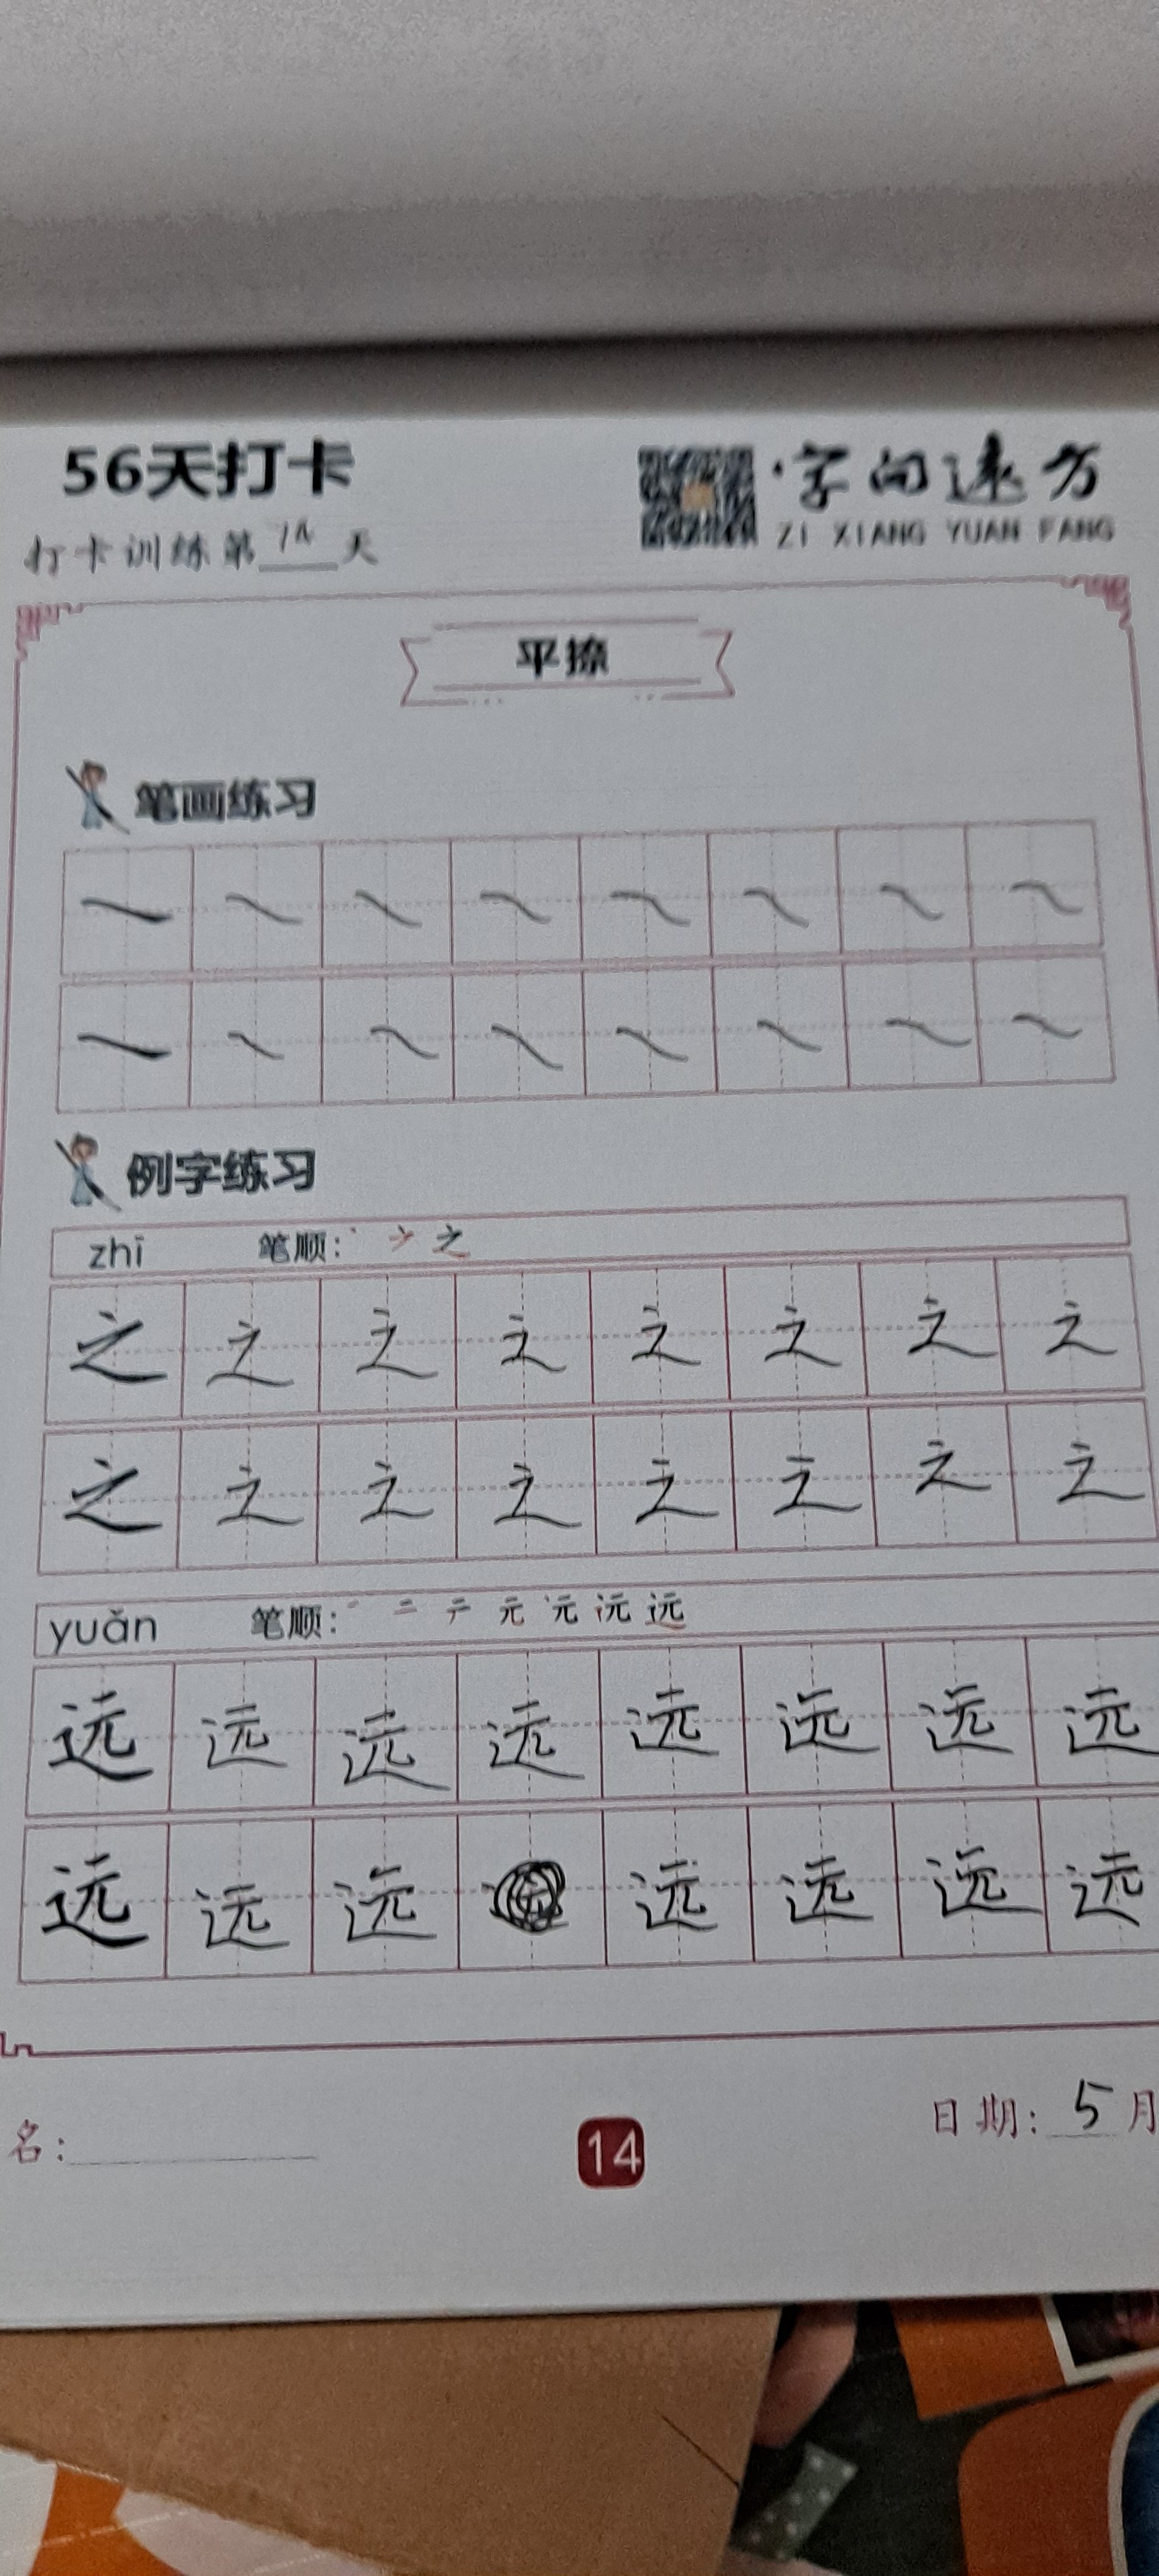 56天打卡
字向远方
ZI XIANG YUAN FANG
打卡训练第14天
平捺
笔画练习
例字练习
zhī 笔顺:
之 之 之 之 之 之 之 之
之 之 之 之 之 之 之 之
yuǎn 笔顺: 一 二 テ 元 元 远 远
远 远 远 远 远 远 远 远
远 远 远 远 远 远 远
名:
14
日期: 5月